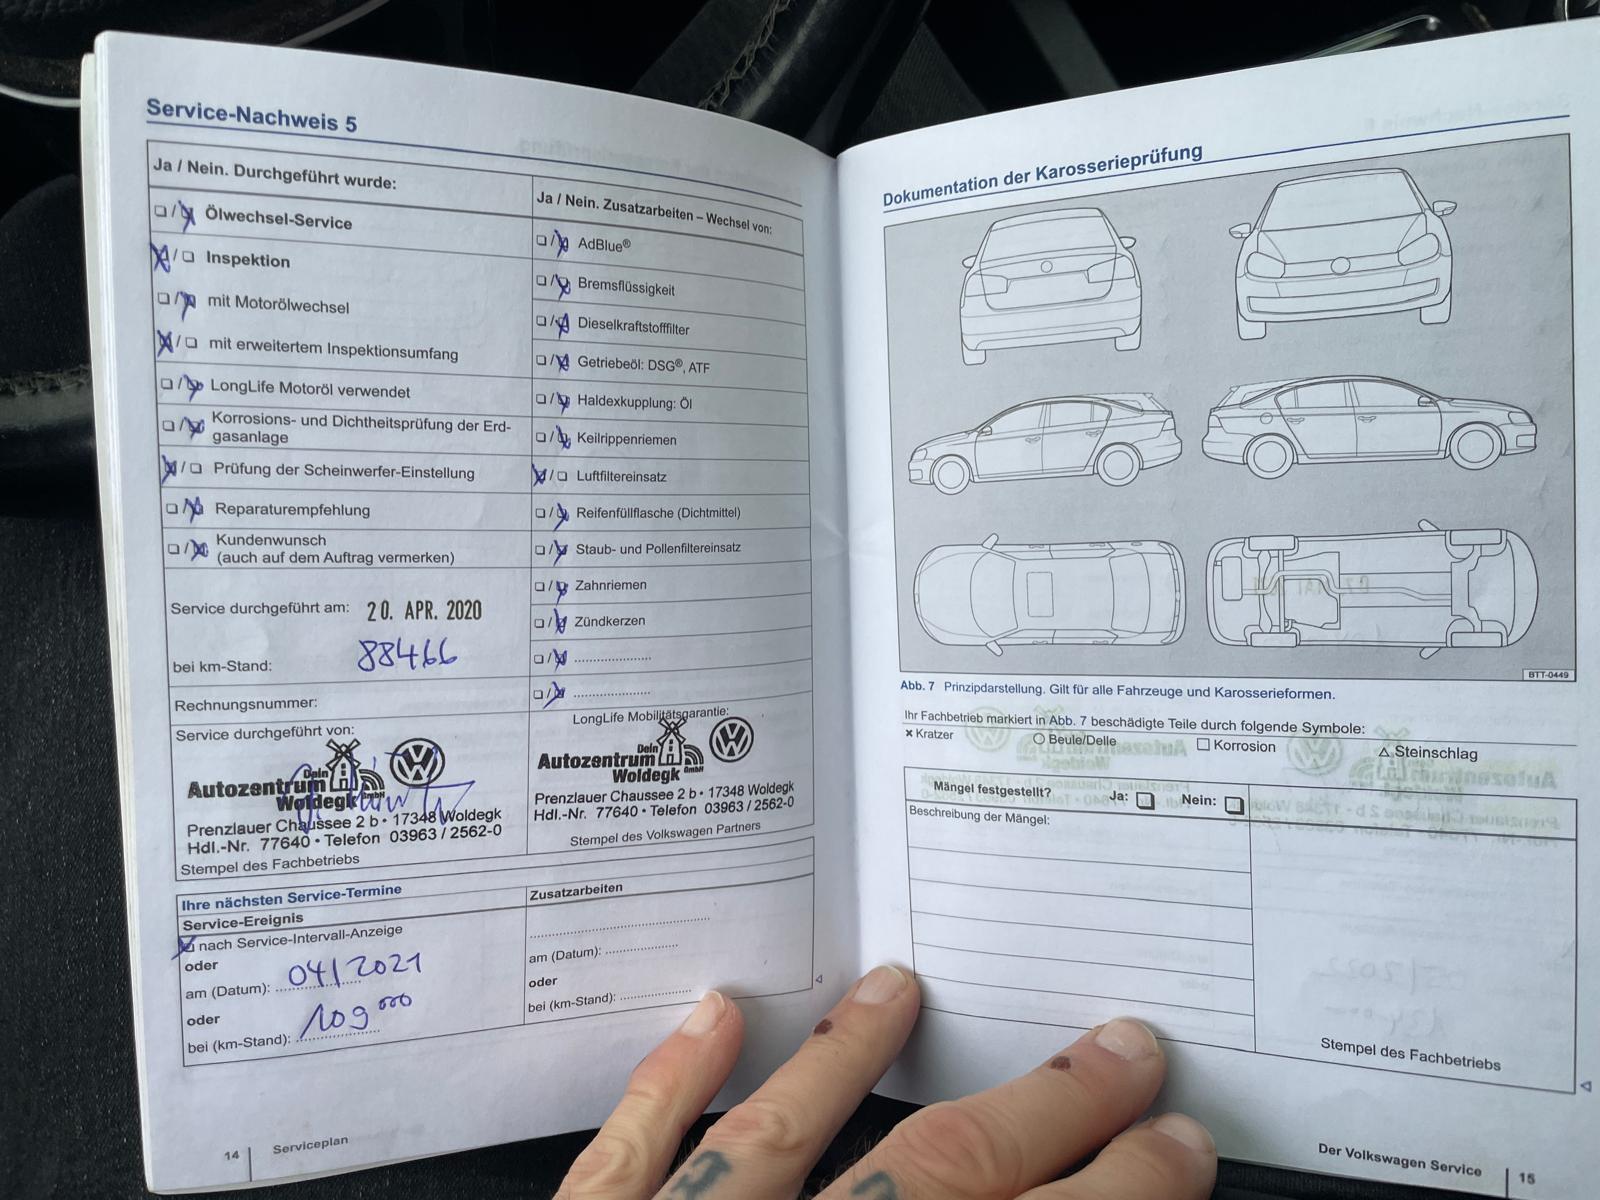 Service-Nachweis 5
Ja / Nein. Durchgeführt wurde:
Ölwechsel-Service
Inspektion
mit Motorölwechsel
mit erweitertem Inspektionsumfang
LongLife Motoröl verwendet
Korrosions- und Dichtheitsprüfung der Erd-
gasanlage
Prüfung der Scheinwerfer-Einstellung
Reparaturempfehlung
Kundenwunsch
(auch auf dem Auftrag vermerken)
Service durchgeführt am: 20. APR. 2020
bei km-Stand: 88466
Rechnungsnummer:
Service durchgeführt von:
Dein
Autozentrum
Woldegk GmbH
Prenzlauer Chaussee 2 b • 17348 Woldegk
Hdl.-Nr. 77640 • Telefon 03963 / 2562-0
Stempel des Fachbetriebs
Ja / Nein. Zusatzarbeiten – Wechsel von:
AdBlue®
Bremsflüssigkeit
Dieselkraftstofffilter
Getriebeöl: DSG®, ATF
Haldexkupplung: Öl
Keilrippenriemen
Luftfiltereinsatz
Reifenfüllflasche (Dichtmittel)
Staub- und Pollenfiltereinsatz
Zahnriemen
Zündkerzen
LongLife Mobilitätsgarantie:
Dein
Autozentrum
Woldegk GmbH
Prenzlauer Chaussee 2 b • 17348 Woldegk
Hdl.-Nr. 77640 • Telefon 03963 / 2562-0
Stempel des Volkswagen Partners
Ihre nächsten Service-Termine
Service-Ereignis
nach Service-Intervall-Anzeige
oder
am (Datum): 04/2021
oder
bei (km-Stand): 109000
Zusatzarbeiten
am (Datum):
oder
bei (km-Stand):
14 Serviceplan
Dokumentation der Karosserieprüfung
BTT-0449
Abb. 7 Prinzipdarstellung. Gilt für alle Fahrzeuge und Karosserieformen.
Ihr Fachbetrieb markiert in Abb. 7 beschädigte Teile durch folgende Symbole:
× Kratzer ○ Beule/Delle □ Korrosion △ Steinschlag
Mängel festgestellt? Ja: Nein:
Beschreibung der Mängel:
Stempel des Fachbetriebs
Der Volkswagen Service 15